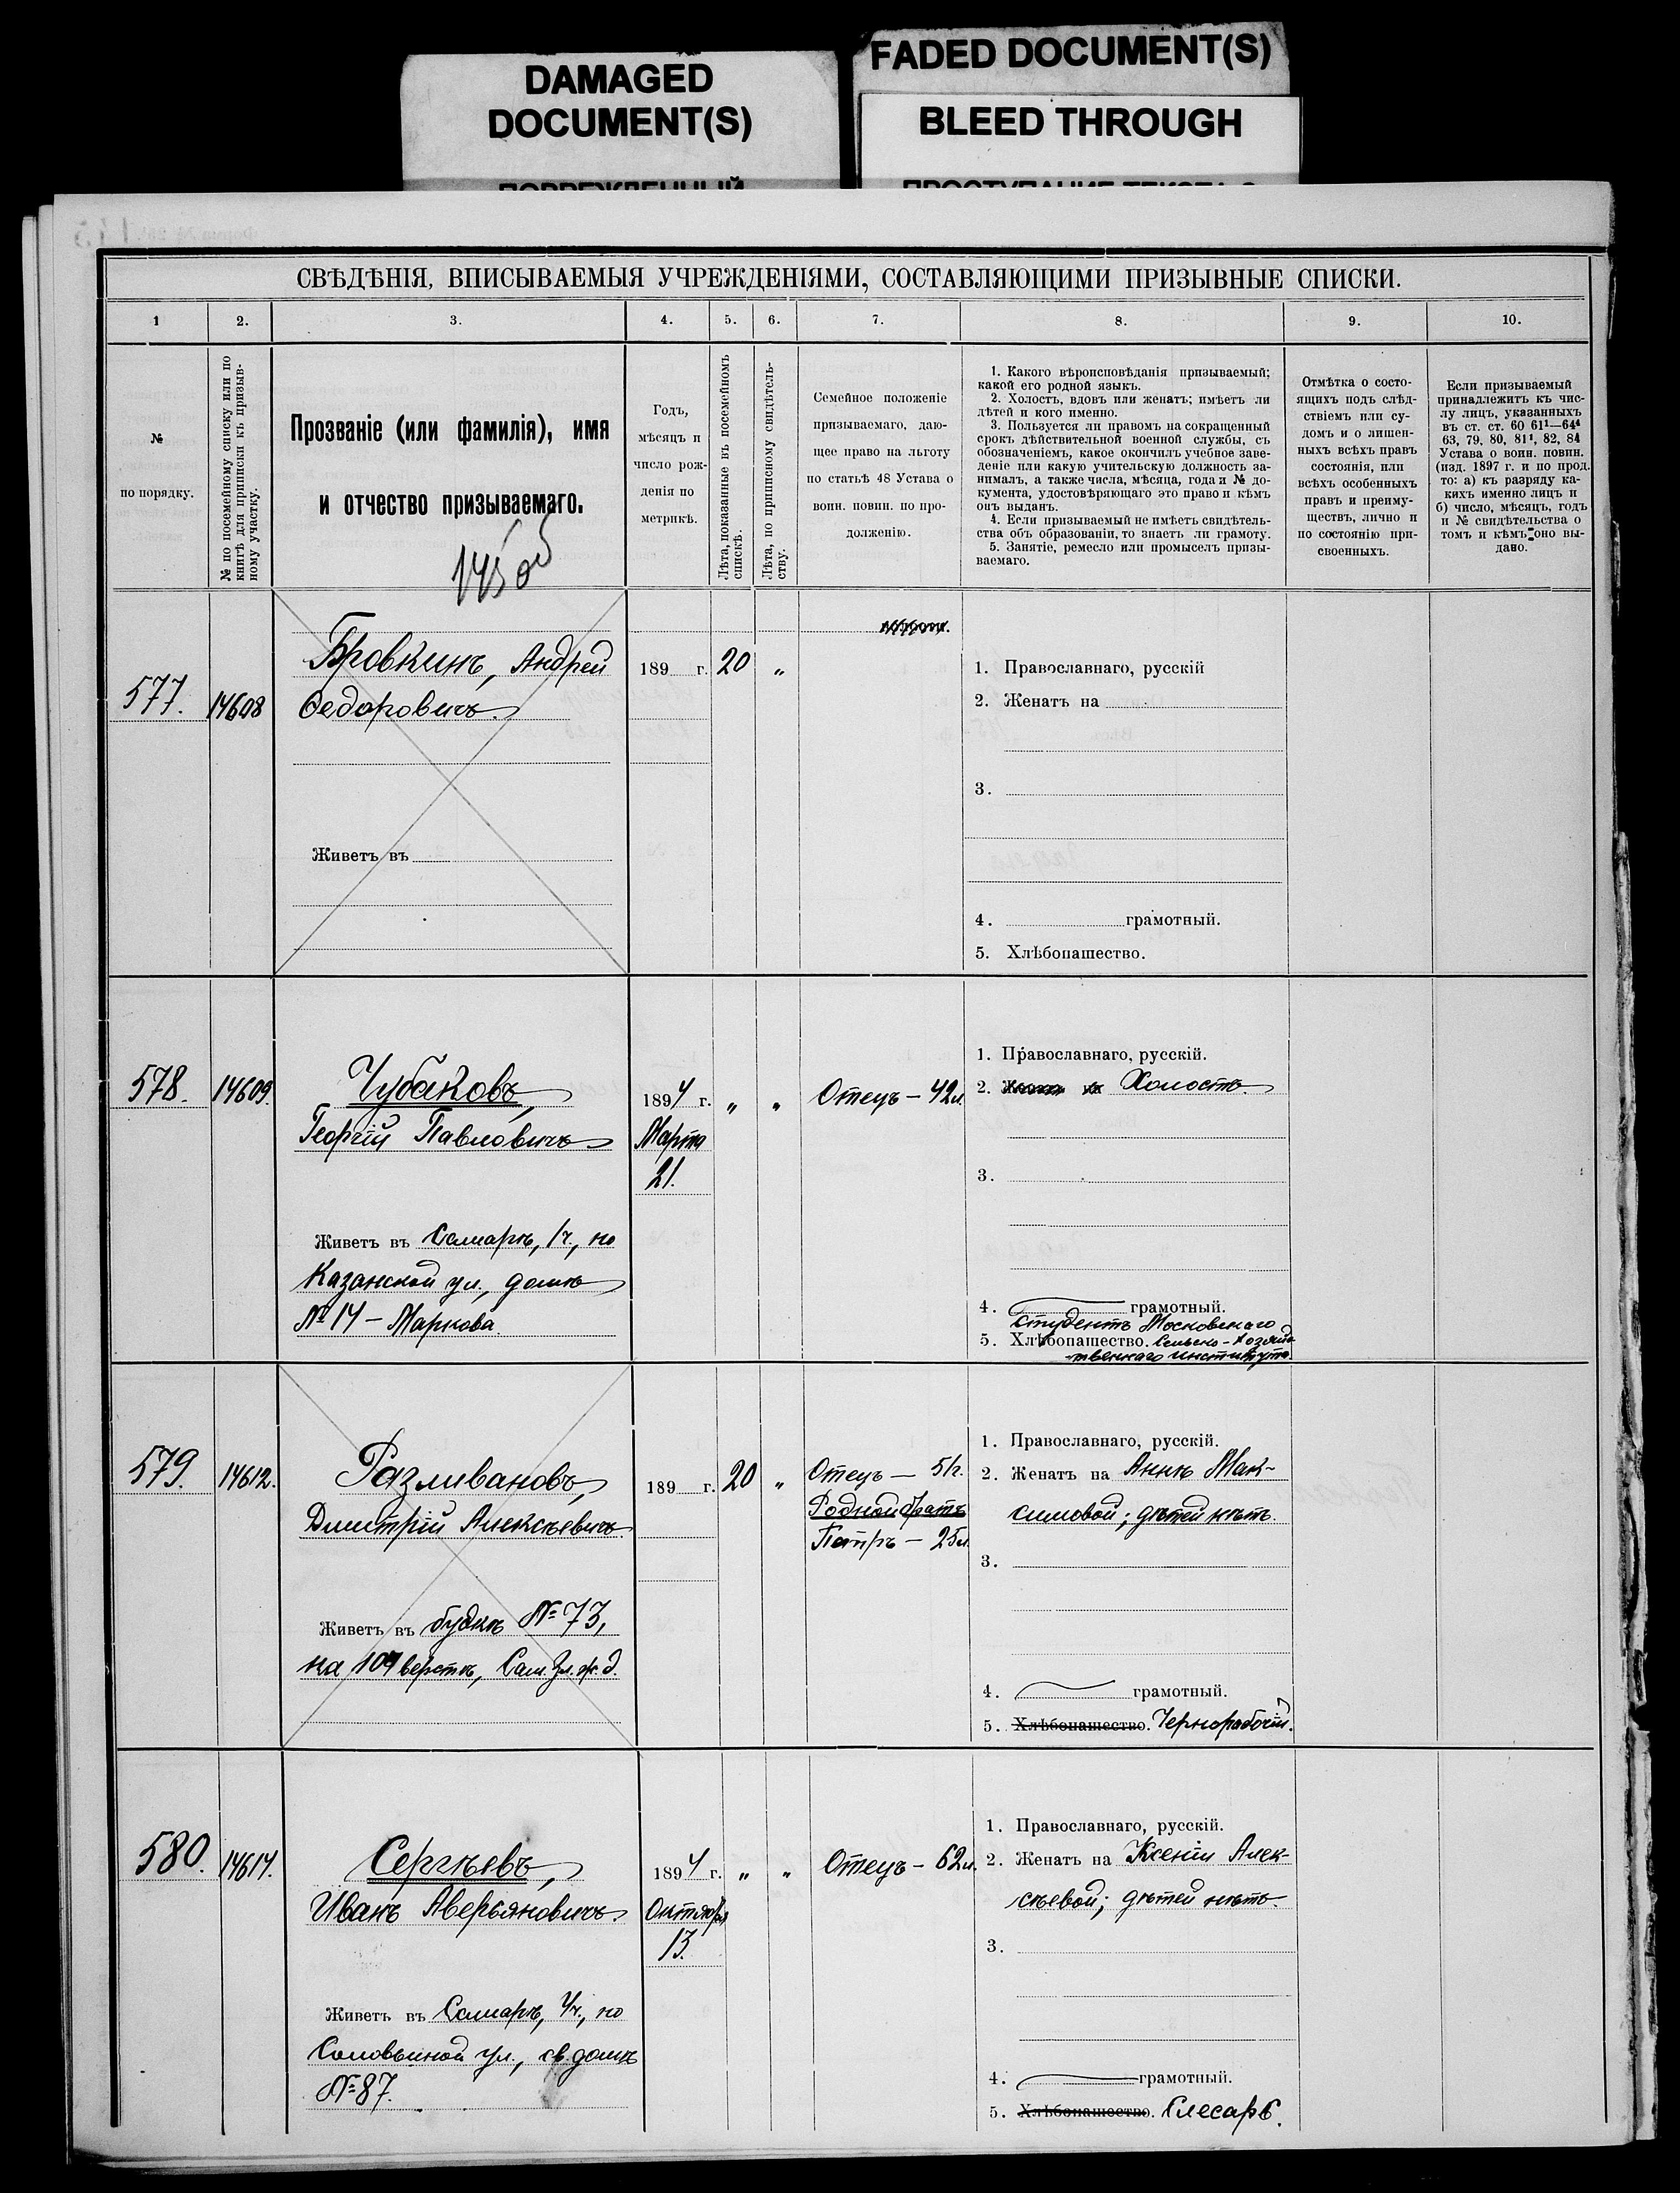 DAMAGED
DOCUMENT(S)
FADED DOCUMENT(S)
BLEED THROUGH
СВѢДѢНІЯ, ВПИСЫВАЕМЫЯ УЧРЕЖДЕНІЯМИ, СОСТАВЛЯЮЩИМИ ПРИЗЫВНЫЕ СПИСКИ.
1 2. 3. 4. 5. 6. 7. 8. 9. 10.
№
по порядку.
№ по посемейному списку или по
книгѣ для приписки къ призыв-
ному участку.
Прозваніе (или фамилія), имя
и отчество призываемаго.
Годъ,
мѣсяцъ и
число рож-
денія по
метрикѣ.
Лѣта, показанные въ посемейномъ
спискѣ.
Лѣта, по приписному свидѣтель-
ству.
Семейное положеніе
призываемаго, даю-
щее право на льготу
по статьѣ 48 Устава о
воин. повин. по про-
долженію.
1. Какого вѣроисповѣданія призываемый;
какой его родной языкъ.
2. Холостъ, вдовъ или женатъ; имѣетъ ли
дѣтей и кого именно.
3. Пользуется ли правомъ на сокращенный
срокъ дѣйствительной военной службы, съ
обозначеніемъ, какое окончилъ учебное заве-
деніе или какую учительскую должность за-
нималъ, а также числа, мѣсяца, года и № до-
кумента, удостовѣряющаго это право и кѣмъ
онъ выданъ.
4. Если призываемый не имѣетъ свидѣтель-
ства объ образованіи, то знаетъ ли грамоту.
5. Занятіе, ремесло или промыселъ призы-
ваемаго.
Отмѣтка о состо-
ящихъ подъ слѣд-
ствіемъ или су-
домъ и о лишен-
ныхъ всѣхъ правъ
состоянія, или
всѣхъ особенныхъ
правъ и преиму-
ществъ, лично и
по состоянію при-
своенныхъ.
Если призываемый
принадлежитъ къ чис-
лу лицъ, указанныхъ
въ ст. ст. 60 61¹—64⁴
63, 79, 80, 81¹, 82, 84
Устава о воин. повин.
(изд. 1897 г. и по прод.
то: а) къ разряду ка-
кихъ именно лицъ и
б) число, мѣсяцъ, годъ
и № свидѣтельства о
томъ и кѣмъ оно вы-
дано.
145об
577. 14608
Бровкинъ, Андрей
Федоровичъ.
Живетъ въ
189 г. 20 „
1. Православнаго, русскій
2. Женатъ на
3.
4. грамотный.
5. Хлѣбопашество.
578. 14609.
Чубаковъ,
Георгій Павловичъ
Живетъ въ Самарѣ, 1ч., по
Казанской ул., домъ
№ 14 – Маркова.
1894 г. „ „
Марта
21.
Отецъ – 42л.
1. Православнаго, русскій.
2. Холостъ.
3.
4. грамотный.
Студентъ Московскаго
5. Хлѣбопашество. Сельско-хозяй-
ственнаго института.
579. 14612.
Разливановъ,
Дмитрій Алексѣевичъ.
Живетъ въ будкѣ № 73,
на 109 верстѣ, Сам. Зл. ж. д.
189 г. 20 „
Отецъ – 51г.
Родной братъ
Петръ – 25л.
1. Православнаго, русскій.
2. Женатъ на Аннѣ Мак-
симовой; дѣтей нѣтъ.
3.
4. грамотный.
5. Хлѣбопашество. Чернорабочій.
580. 14614.
Сергѣевъ,
Иванъ Аверьяновичъ.
Живетъ въ Самарѣ, 4ч., по
Соловьиной ул., св. домъ
№ 87.
1894 г. „ „
Октября
13.
Отецъ – 62л.
1. Православнаго, русскій.
2. Женатъ на Ксеніи Алек-
сѣевой; дѣтей нѣтъ.
3.
4. грамотный.
5. Хлѣбопашество. Слесарь.